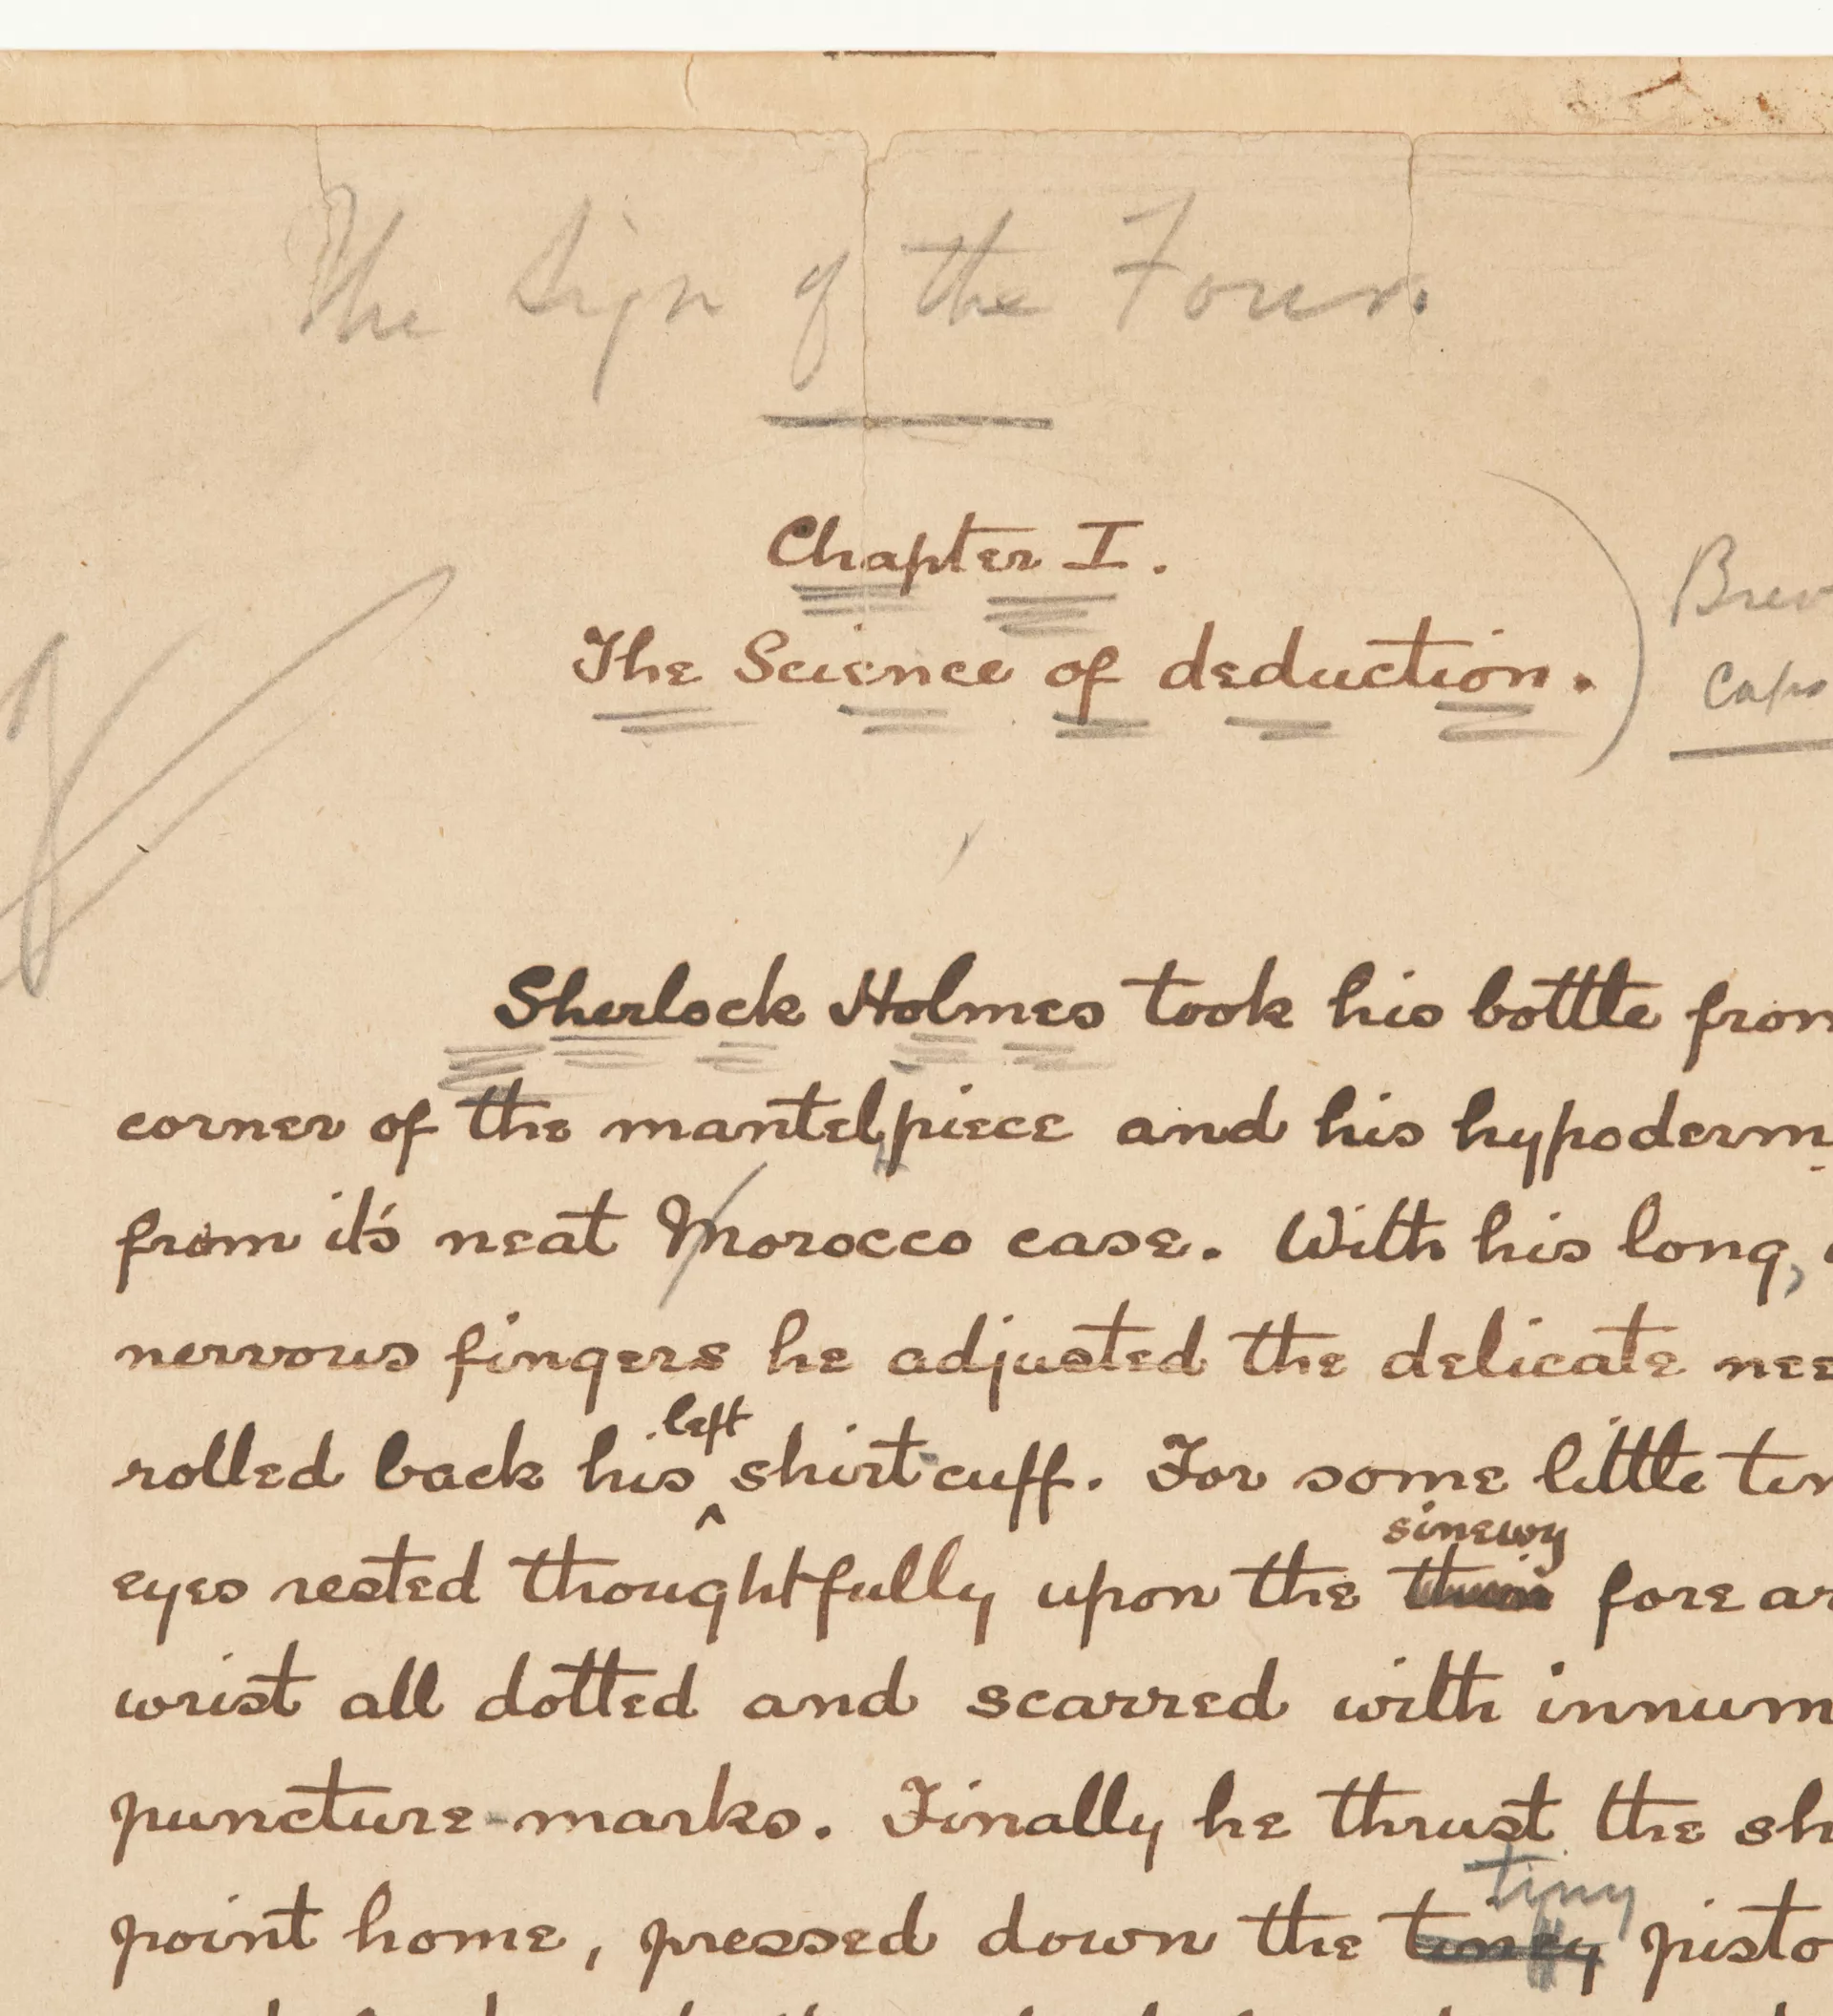 The Sign of the Four.
Chapter I.
The Science of deduction.
Brev
Caps
Sherlock Holmes took his bottle from
corner of the mantelpiece and his hypoderm
from it's neat Morocco case. With his long,
nervous fingers he adjusted the delicate nee
left
rolled back his ‸ shirt-cuff. For some little tim
sinewy
eyes rested thoughtfully upon the fore ar
wrist all dotted and scarred with innum
puncture-marks. Finally he thrust the sh
tiny
point home, pressed down the tiney pisto